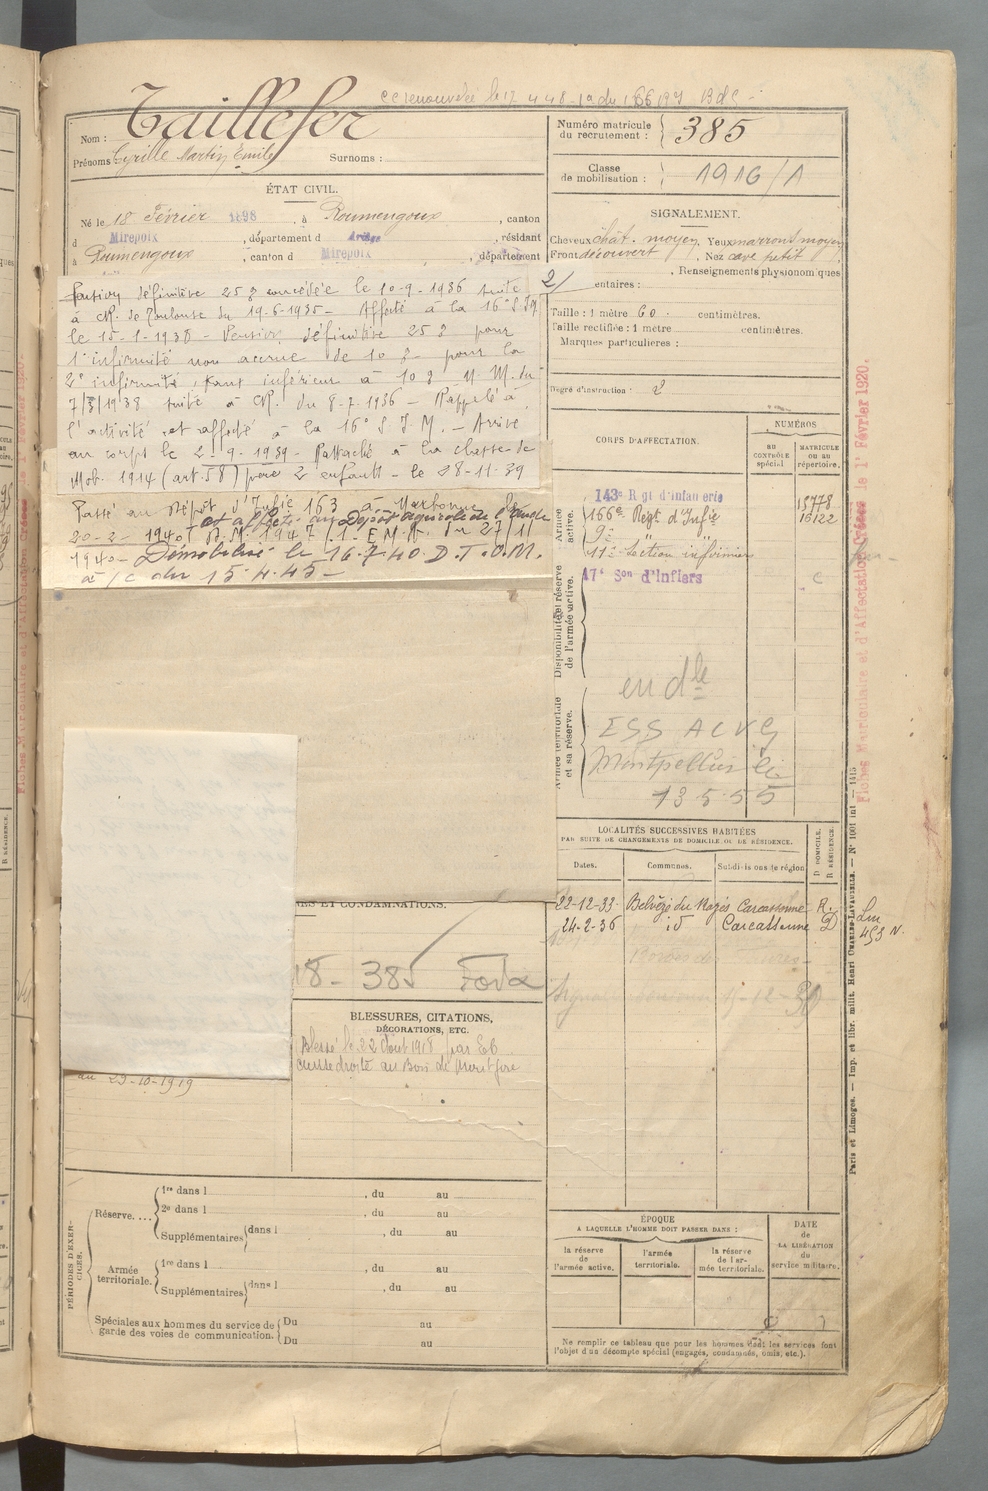 Taillefer
Nom :
Prénoms Cyrille Martin Emile Surnoms :
ÉTAT CIVIL.
Né le 18 Février 1898, à Roumengoux, canton
d Mirepoix, département d Ariège, résidant
à Roumengoux, canton d Mirepoix, département
Pension définitive 25 % concédée le 10-9-1936 suite
à CR. de Toulouse du 19-6-1935 - Affecté à la 16e S.I.M
le 15-1-1938 - Pension définitive 25 % pour
1e infirmité non accrue de 10 % - pour la
2e infirmité, étant inférieur à 10 % M. du
7/3/1938 suite à CR. du 8-7-1936 - Rappelé à
l'activité et affecté à la 16e S I M. - Arrivé
au corps le 2-9-1939 - Rattaché à la classe de
Mob. 1914 (art. 58) père 2 enfants - le 28-11-39
Passé au Dépôt d'Infie 163 à Narbonne
et affecté au Dépôt agricole de l'Aude
20-2-1940 1947/1-E.M. du 27/11
1940 - Démobilisé le 16.7.40 D.T.O.M.
à /c du 15.4.45 -
ET CONDAMNATIONS.
18 - 385 Foix
BLESSURES, CITATIONS,
DÉCORATIONS, ETC.
Blessé le 22 Août 1918 par E.O
cuisse droite au Bois de
au 29-10-1919
PÉRIODES D'EXERCICES.
Réserve....
1re dans l , du au
2e dans l , du au
Supplémentaires dans l , du au
Armée territoriale.
1re dans l , du au
Supplémentaires dans l , du au
Spéciales aux hommes du service de garde des voies de communication.
Du au
Du au
Numéro matricule du recrutement : 385
Classe de mobilisation : 1916/1
SIGNALEMENT.
Cheveux chât. moyen Yeux marrons moyen
Front découvert, Nez cave petit
, Renseignements physionomiques
2/ entaires :
Taille : 1 mètre 60. centimètres.
Taille rectifiée : 1 mètre centimètres.
Marques particulières :
Degré d'instruction : 2
CORPS D'AFFECTATION.
NUMÉROS
AU CONTRÔLE spécial
MATRICULE OU AU répertoire.
Armée active.
143e Rgt d'infanterie 15778
166e Regt d'Infie 15122
9e
11e Section infirmier
17e Son d'Infiers
C
Disponibilité et réserve de l'armée active.
Armée territoriale et sa réserve.
en dle
ESS ACVG
Montpellier le
13 5.55
LOCALITÉS SUCCESSIVES HABITÉES
PAR SUITE DE CHANGEMENTS DE DOMICILE OU DE RÉSIDENCE.
Dates. Communes. Subdivisions de région
D DOMICILE.
R RÉSIDENCE.
22-12-33 Belvèze du Razès Carcassonne R.
24-2-36 id Carcassonne D
453 N.
ÉPOQUE
A LAQUELLE L'HOMME DOIT PASSER DANS :
la réserve de l'armée active.
l'armée territoriale.
la réserve de l'armée territoriale.
DATE de LA LIBÉRATION du service militaire.
Ne remplir ce tableau que pour les hommes dont les services font
l'objet d'un décompte spécial (engagés, condamnés, omis, etc.).
Fiches Matriculaire et d'Affectation Créées le 1er Février 1920.
Paris et Limoges. — Imp. et libr. milit. Henri CHARLES-LAVAUZELLE. — N° 1001 int — 1415